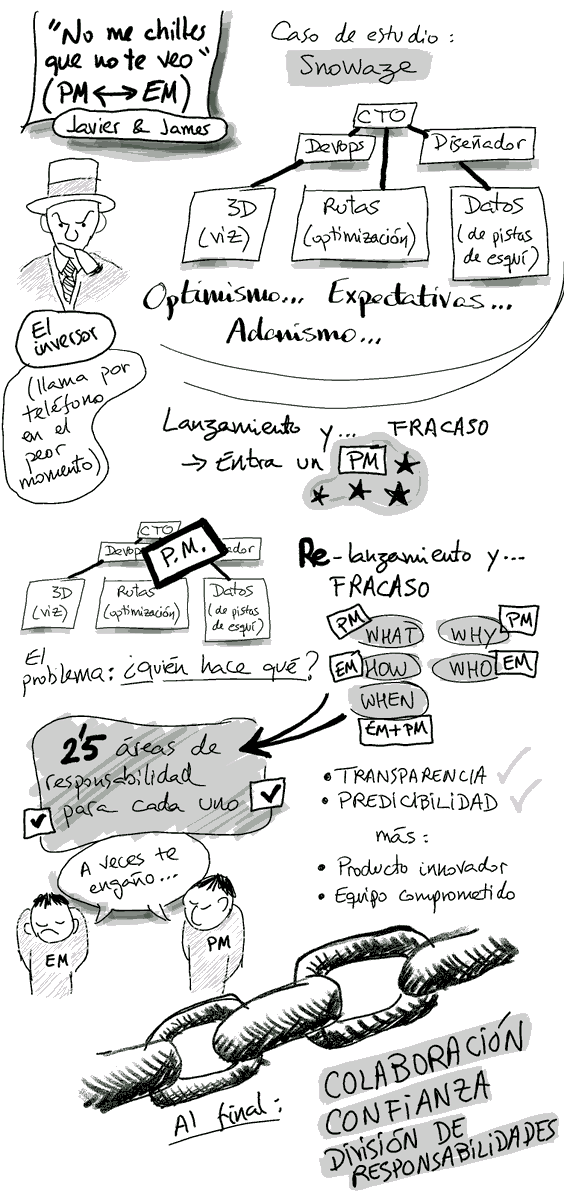 "No me chilles
que no te veo"
(PM ↔ EM)
Javier & James
Caso de estudio:
Snowaze
CTO
Devops
Diseñador
3D
(viz)
Rutas
(optimización)
Datos
(de pistas
de esquí)
Optimismo... Expectativas...
Adanismo...
El
inversor
(llama por
teléfono
en el
peor
momento)
Lanzamiento y... FRACASO
→ Entra un PM
CTO
Devop
P.M.
ador
3D
(viz)
Rutas
(optimización)
Datos
(de pistas
de esquí)
El
problema: ¿quién hace qué?
Re-lanzamiento y...
FRACASO
PM WHAT WHY PM
EM HOW WHO EM
WHEN
EM+PM
2'5 áreas de
responsabilidad
para cada uno
• TRANSPARENCIA
• PREDICIBILIDAD
más:
• Producto innovador
• Equipo comprometido
A veces te
engaño...
EM
PM
Al final:
COLABORACIÓN
CONFIANZA
DIVISIÓN DE
RESPONSABILIDADES